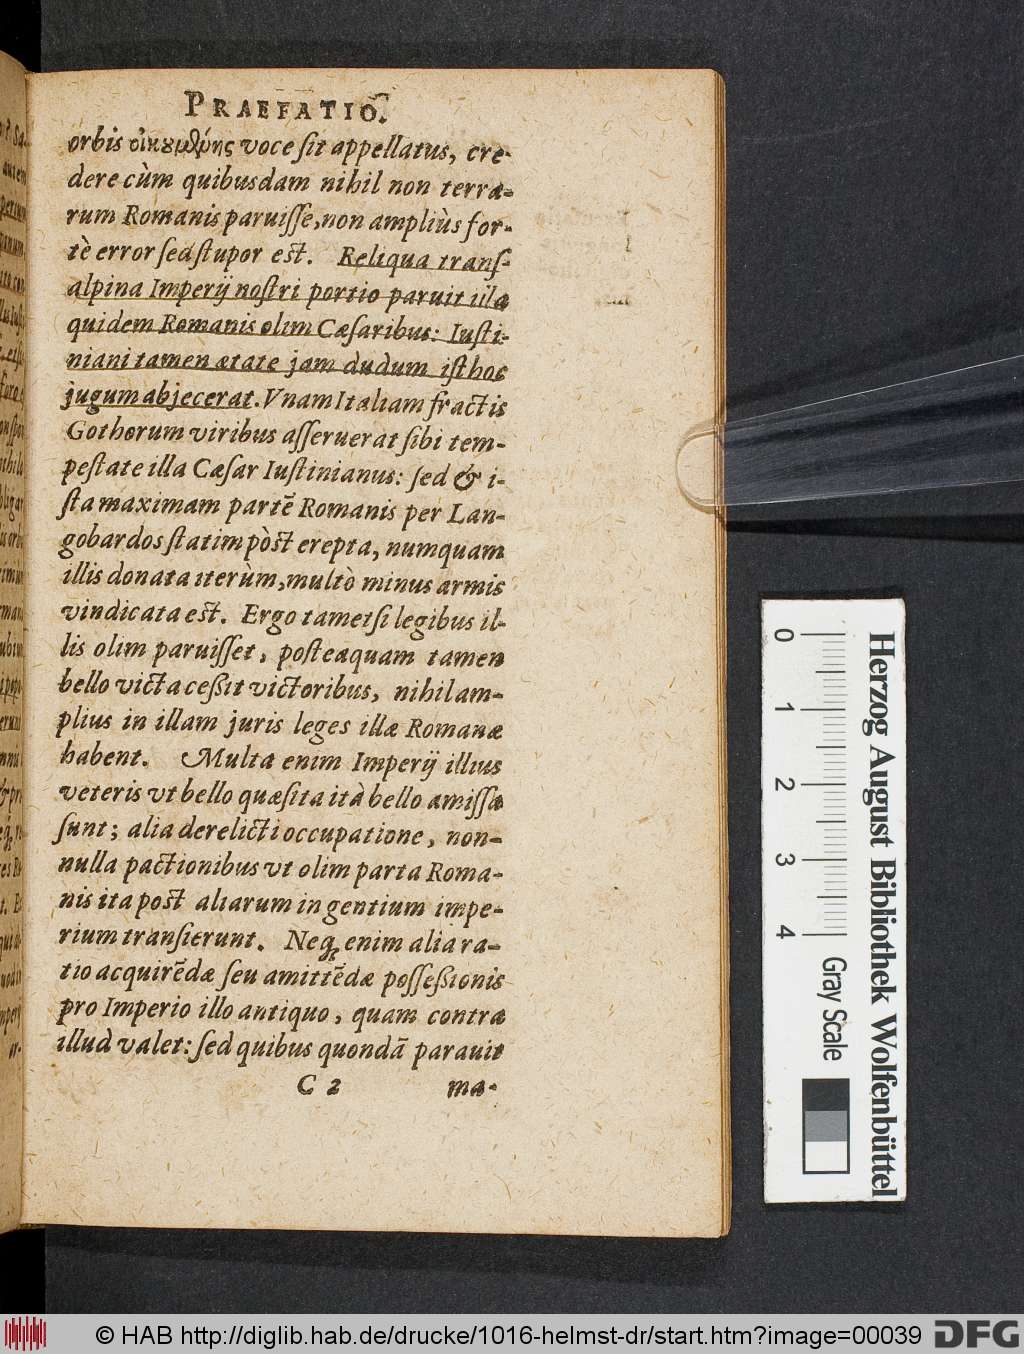 PRAEFATIO.
orbis οἰκουμένης voce ſit appellatus, cre-
dere cùm quibusdam nihil non terra-
rum Romanis paruiſſe, non ampliùs for-
tè error ſed ſtupor eſt. Reliqua tranſ-
alpina Imperij noſtri portio paruit illa
quidem Romanis olim Cæſaribus: Iuſti-
niani tamen ætate jam dudum iſthoc
jugum abjecerat. Vnam Italiam fractis
Gothorum viribus aſſeruerat ſibi tem-
peſtate illa Cæſar Iuſtinianus: ſed & i-
ſta maximam partē Romanis per Lan-
gobardos ſtatim pòſt erepta, numquam
illis donata iterùm, multò minus armis
vindicata eſt. Ergo tametſi legibus il-
lis olim paruiſſet, poſteaquam tamen
bello victa ceßit victoribus, nihil am-
plius in illam juris leges illæ Romanæ
habent. Multa enim Imperij illius
veteris vt bello quæſita ità bello amiſſa
ſunt; alia derelicti occupatione, non-
nulla pactionibus vt olim parta Roma-
nis ita poſt aliarum in gentium impe-
rium tranſierunt. Neq; enim alia ra-
tio acquirēdæ ſeu amittēdæ poſſeßionis
pro Imperio illo antiquo, quam contra
illud valet: ſed quibus quondā parauit
C 2 ma-
0 1 2 3 4
Herzog August Bibliothek Wolfenbüttel
Gray Scale
© HAB http://diglib.hab.de/drucke/1016-helmst-dr/start.htm?image=00039
DFG